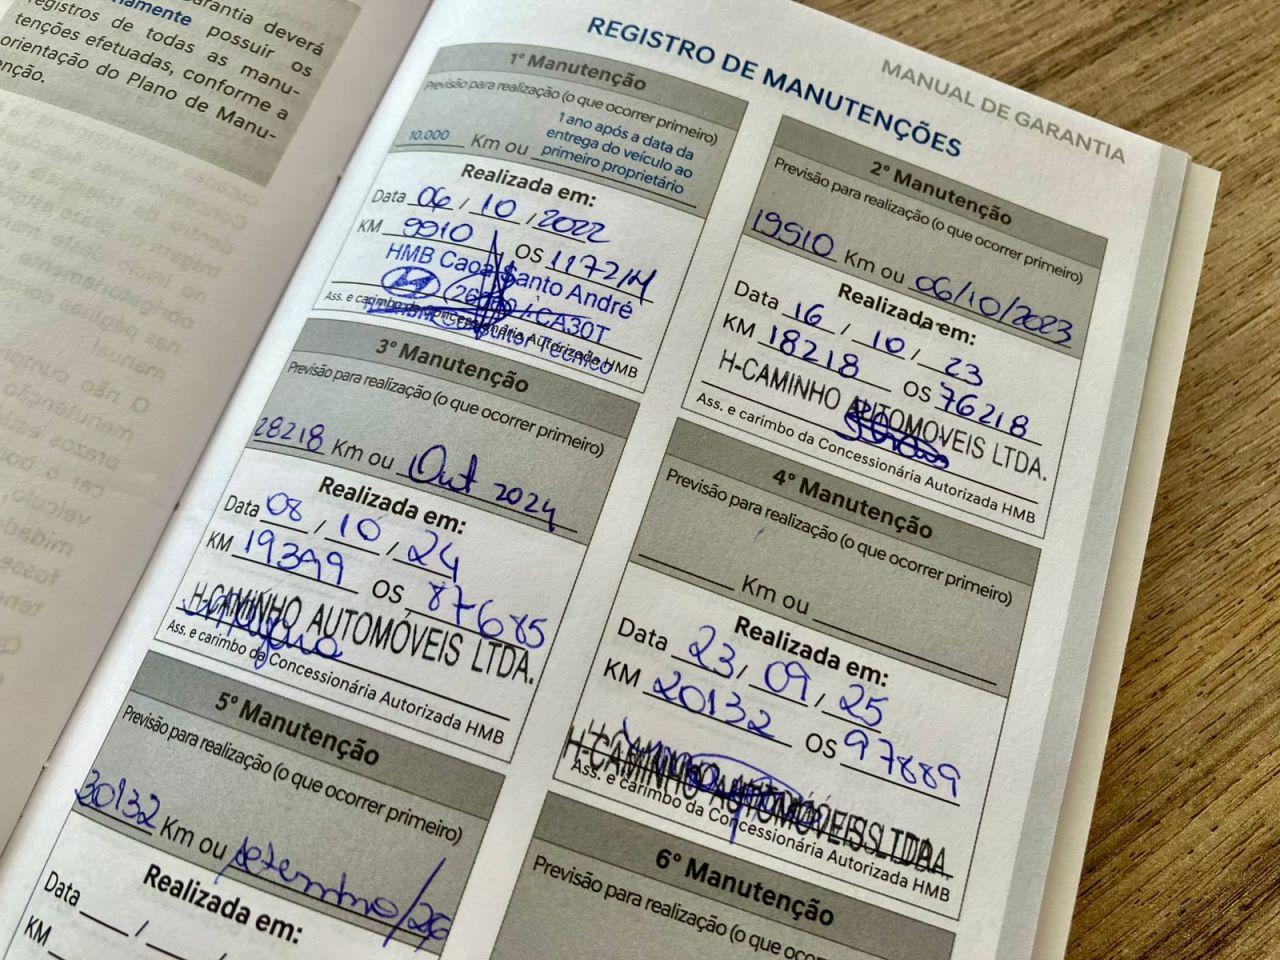 arantia deverá
amente possuir os
registros de todas as manu-
tenções efetuadas, conforme a
orientação do Plano de Manu-
enção.
MANUAL DE GARANTIA
REGISTRO DE MANUTENÇÕES
1º Manutenção
Previsão para realização (o que ocorrer primeiro)
10.000 Km ou 1 ano após a data da
entrega do veículo ao
primeiro proprietário
Realizada em:
Data 06 / 10 / 2022
KM 9910 OS 117214
HMB Caoa Santo André
CA30T
Consultor Técnico
Ass. e carimbo da Concessionária Autorizada HMB
2º Manutenção
Previsão para realização (o que ocorrer primeiro)
19910 Km ou 06/10/2023
Realizada em:
Data 16 / 10 / 23
KM 18218 OS 76218
H-CAMINHO AUTOMOVEIS LTDA.
Ass. e carimbo da Concessionária Autorizada HMB
3º Manutenção
Previsão para realização (o que ocorrer primeiro)
28218 Km ou Out 2024
Realizada em:
Data 08 / 10 / 24
KM 19399 OS 87685
H-CAMINHO AUTOMÓVEIS LTDA.
Ass. e carimbo da Concessionária Autorizada HMB
4º Manutenção
Previsão para realização (o que ocorrer primeiro)
Km ou
Realizada em:
Data 23 / 09 / 25
KM 20132 OS 97889
H-CAMINHO AUTOMÓVEIS LTDA.
Ass. e carimbo da Concessionária Autorizada HMB
5º Manutenção
Previsão para realização (o que ocorrer primeiro)
30132 Km ou setembro/26
Realizada em:
Data / /
KM
6º Manutenção
Previsão para realização (o que ocorrer primeiro)